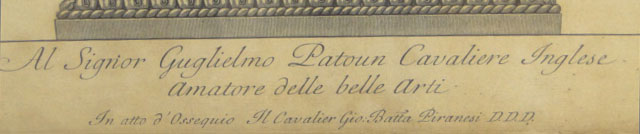 Al Signor Guglielmo Patoun Cavaliere Inglese
Amatore delle belle Arti
In atto d'Ossequio Il Cavalier Gio. Batta Piranesi D.D.D.